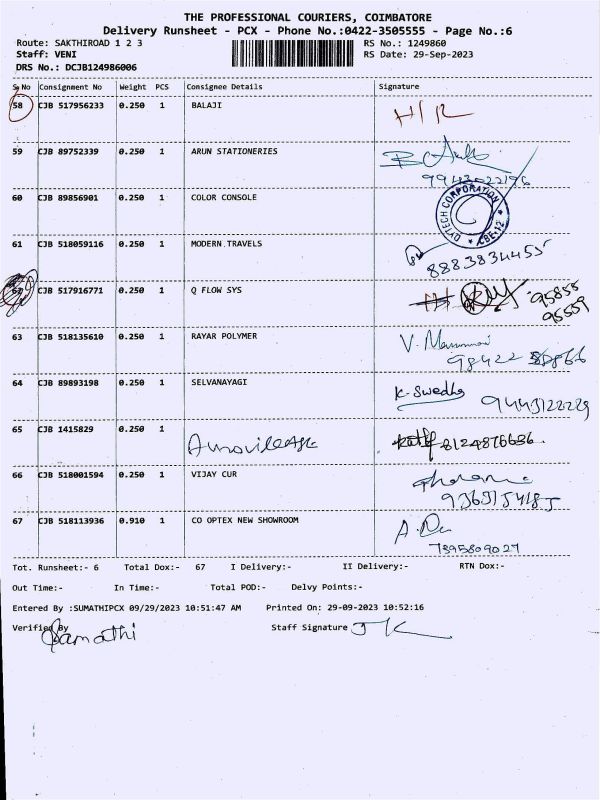 THE PROFESSIONAL COURIERS, COIMBATORE
Delivery Runsheet - PCX - Phone No.:0422-3505555 - Page No.:6
Route: SAKTHIROAD 1 2 3 RS No.: 1249860
Staff: VENI RS Date: 29-Sep-2023
DRS No.: DCJB124986006
S No Consignment No Weight PCS Consignee Details Signature
58 CJB 517956233 0.250 1 BALAJI H/R
59 CJB 89752339 0.250 1 ARUN STATIONERIES
9943022196
60 CJB 89856901 0.250 1 COLOR CONSOLE DYTECH CORPORATION * CBE-12 *
61 CJB 518059116 0.250 1 MODERN TRAVELS
8883834455
CJB 517916771 0.250 1 Q FLOW SYS 95855
95559
63 CJB 518135610 0.250 1 RAYAR POLYMER
98422
64 CJB 89893198 0.250 1 SELVANAYAGI K. Swedha
9443122229
65 CJB 1415829 0.250 1 8124876686
66 CJB 518001594 0.250 1 VIJAY CUR
67 CJB 518113936 0.910 1 CO OPTEX NEW SHOWROOM
7395809027
Tot. Runsheet:- 6 Total Dox:- 67 I Delivery:- II Delivery:- RTN Dox:-
Out Time:- In Time:- Total POD:- Delvy Points:-
Entered By :SUMATHIPCX 09/29/2023 10:51:47 AM Printed On: 29-09-2023 10:52:16
Verified By Staff Signature
Sumathi JK